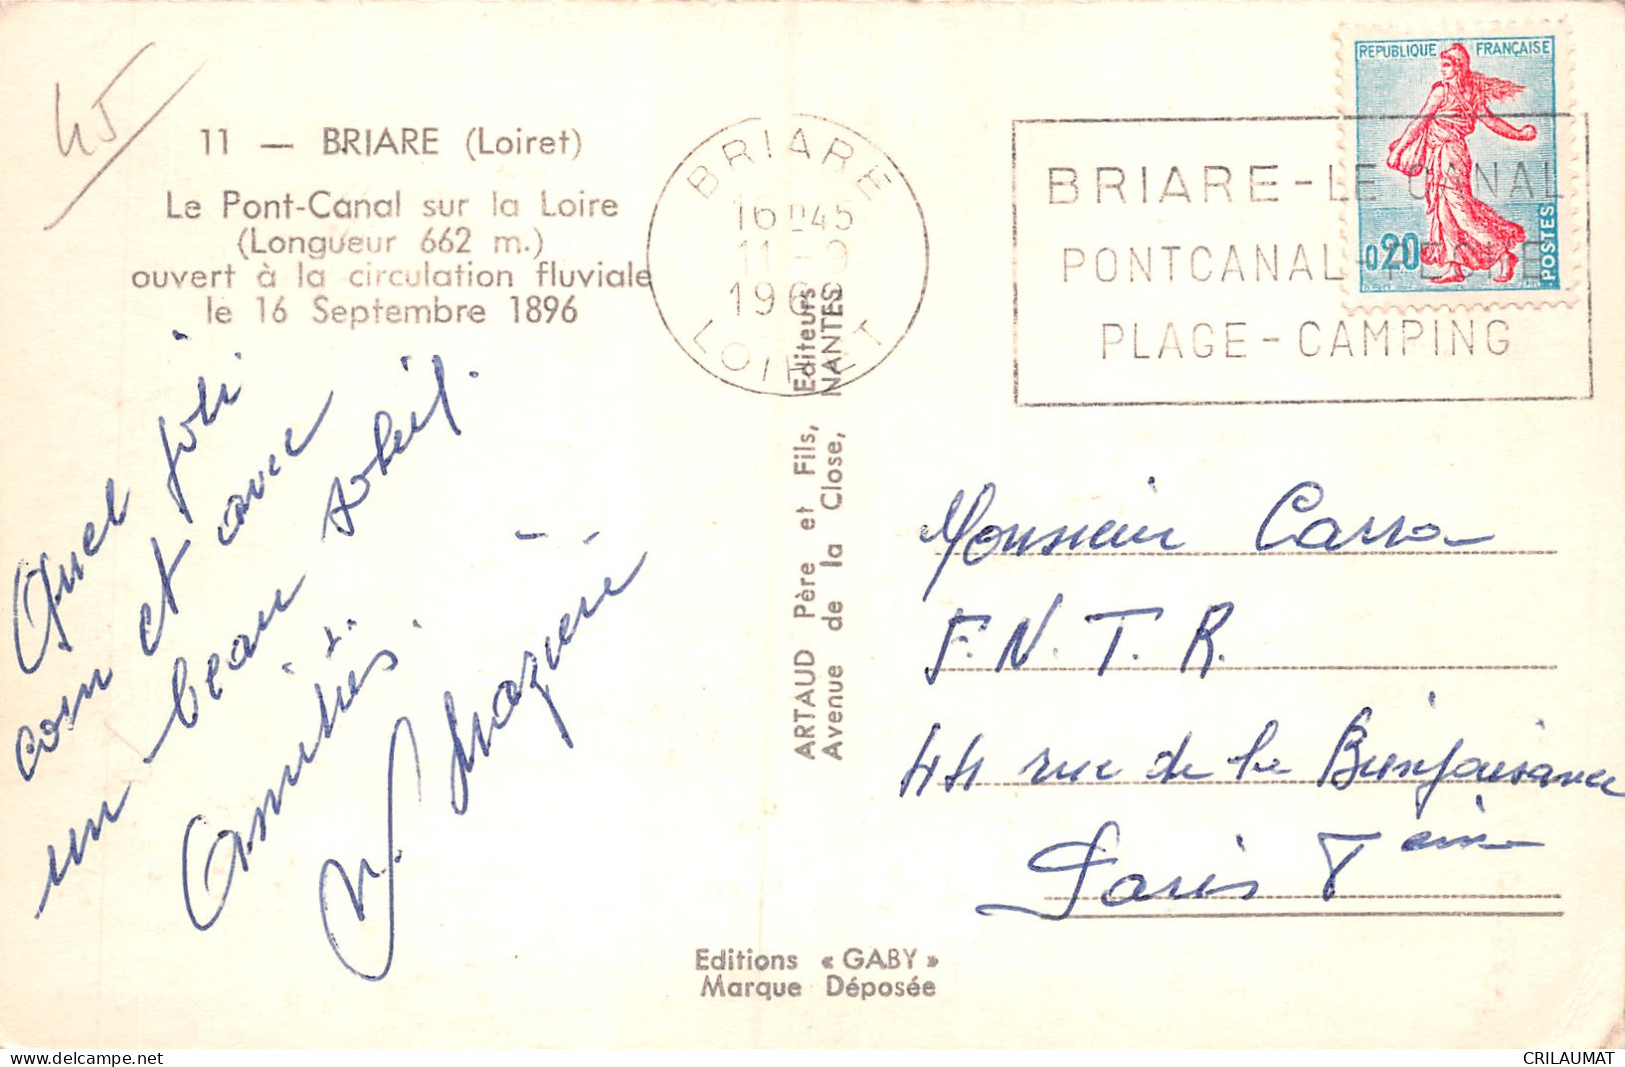 45
11 — BRIARE (Loiret)
Le Pont-Canal sur la Loire
(Longueur 662 m.)
ouvert à la circulation fluviale
le 16 Septembre 1896
Quel joli
coin et avec
un beau soleil.
Amitiés.
BRIARE
16H45
11-9
196
LOIRET
BRIARE - LE CANAL
PONTCANAL - PECHE
PLAGE - CAMPING
REPUBLIQUE FRANÇAISE
0,20
POSTES
ARTAUD Père et Fils, Editeurs
Avenue de la Close, NANTES
Monsieur
F.N.T.R.
44 rue de la Bienfaisance
Paris
Editions « GABY »
Marque Déposée
delcampe.net
CRILAUMAT